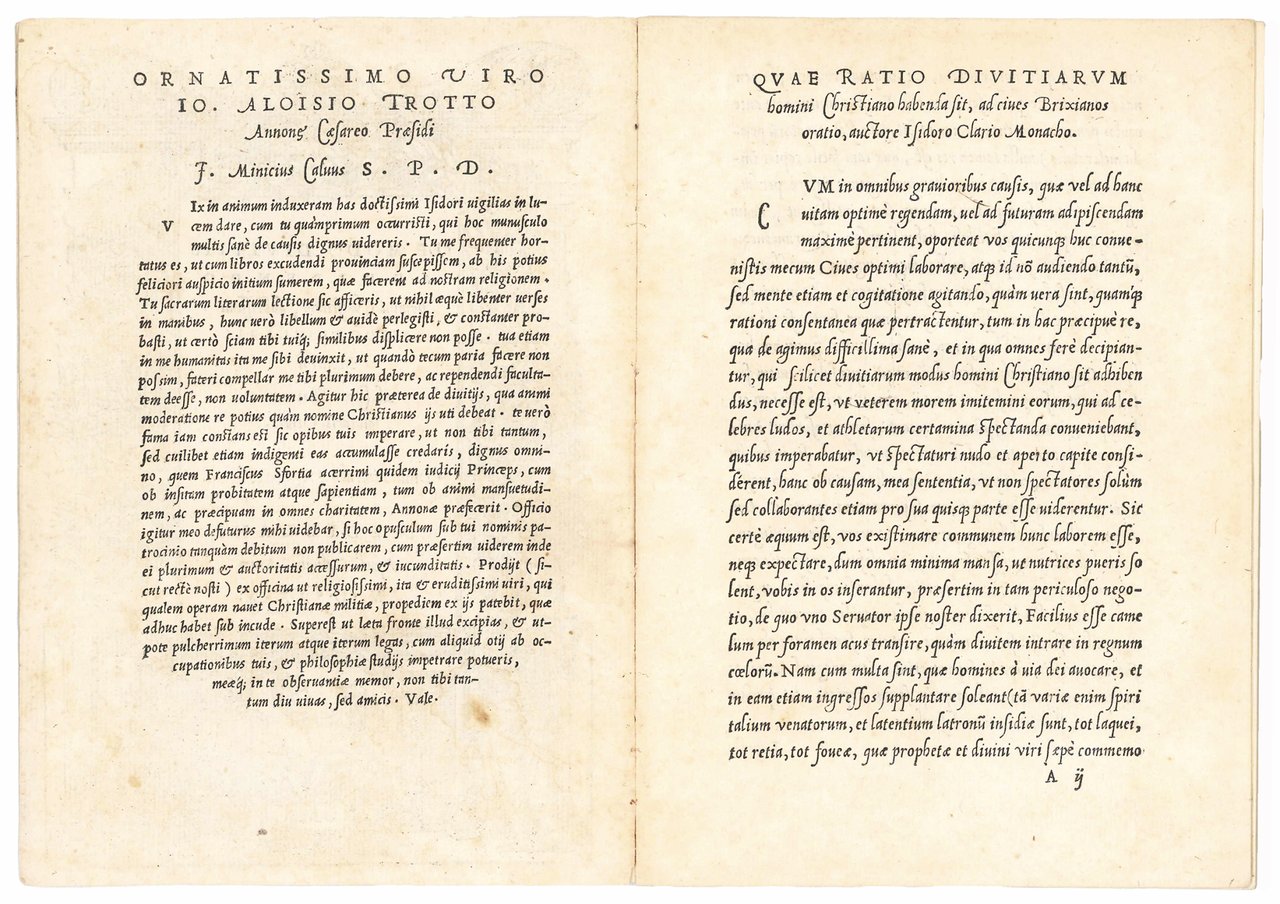 ORNATISSIMO VIRO
IO. ALOISIO TROTTO
Annonę Cæsareo Præsidi
F. Minicius Caluus S. P. D.
VIx in animum induxeram has doctissimi Isidori uigilias in lu-
cem dare, cum tu quàmprimum occurristi, qui hoc munusculo
multis sanè de causis dignus uidereris. Tu me frequenter hor-
tatus es, ut cum libros excudendi prouinciam suscepissem, ab his potius
feliciori auspicio initium sumerem, quæ facerent ad nostram religionem.
Tu sacrarum literarum lectione sic afficeris, ut nihil æquè libenter uerses
in manibus, hunc uerò libellum & auidè perlegisti, & constanter pro-
basti, ut certò sciam tibi tuiq; similibus displicere non posse. tua etiam
in me humanitas ita me sibi deuinxit, ut quandò tecum paria facere non
possim, fateri compellar me tibi plurimum debere, ac rependendi faculta-
tem deesse, non uoluntatem. Agitur hic præterea de diuitijs, qua animi
moderatione re potius quàm nomine Christianus ijs uti debeat. te uerò
fama iam constans est sic opibus tuis imperare, ut non tibi tantum,
sed cuilibet etiam indigenti eas accumulasse credaris, dignus omni-
no, quem Franciscus Sfortia acerrimi quidem iudicij Princeps, cum
ob insitam probitatem atque sapientiam, tum ob animi mansuetudi-
nem, ac præcipuam in omnes charitatem, Annonæ præfecerit. Officio
igitur meo defuturus mihi uidebar, si hoc opusculum sub tui nominis pa-
trocinio tanquàm debitum non publicarem, cum præsertim uiderem inde
ei plurimum & auctoritatis accessurum, & iucunditatis. Prodijt (si-
cut rectè nosti) ex officina ut religiosissimi, ita & eruditissimi uiri, qui
qualem operam nauet Christianæ militiæ, propediem ex ijs patebit, quæ
adhuc habet sub incude. Superest ut læta fronte illud excipias, & ut-
pote pulcherrimum iterum atque iterum legas, cum aliquid otij ab oc-
cupationibus tuis, & philosophiæ studijs impetrare potueris,
meæq; in te obseruantiæ memor, non tibi tan-
tum diu uiuas, sed amicis. Vale.
QVAE RATIO DIVITIARVM
homini Christiano habenda sit, ad ciues Brixianos
oratio, auctore Isidoro Clario Monacho.
CVM in omnibus grauioribus causis, quæ vel ad hanc
vitam optimè regendam, uel ad futuram adipiscendam
maximè pertinent, oporteat vos quicunq; huc conue-
nistis mecum Ciues optimi laborare, atq; id nō audiendo tantū,
sed mente etiam et cogitatione agitando, quàm vera sint, quamq;
rationi consentanea quæ pertractentur, tum in hac præcipuè re,
qua de agimus difficillima sanè, et in qua omnes ferè decipian-
tur, qui scilicet diuitiarum modus homini Christiano sit adhiben
dus, necesse est, vt veterem morem imitemini eorum, qui ad ce-
lebres ludos, et athletarum certamina spectanda conueniebant,
quibus imperabatur, vt spectaturi nudo et aperto capite consi-
derent, hanc ob causam, mea sententia, vt non spectatores solùm
sed collaborantes etiam pro sua quisq; parte esse uiderentur. Sic
certè æquum est, vos existimare communem hunc laborem esse,
neq; expectare, dum omnia minima mansa, ut nutrices pueris so
lent, vobis in os inserantur, præsertim in tam periculoso nego-
tio, de quo vno Seruator ipse noster dixerit, Facilius esse came
lum per foramen acus transire, quàm diuitem intrare in regnum
cœlorū. Nam cum multa sint, quæ homines à via dei auocare, et
in eam etiam ingressos supplantare soleant(tā variæ enim spiri
talium venatorum, et latentium latronū insidiæ sunt, tot laquei,
tot retia, tot foueæ, quæ prophetæ et diuini viri sæpè commemo
A ij